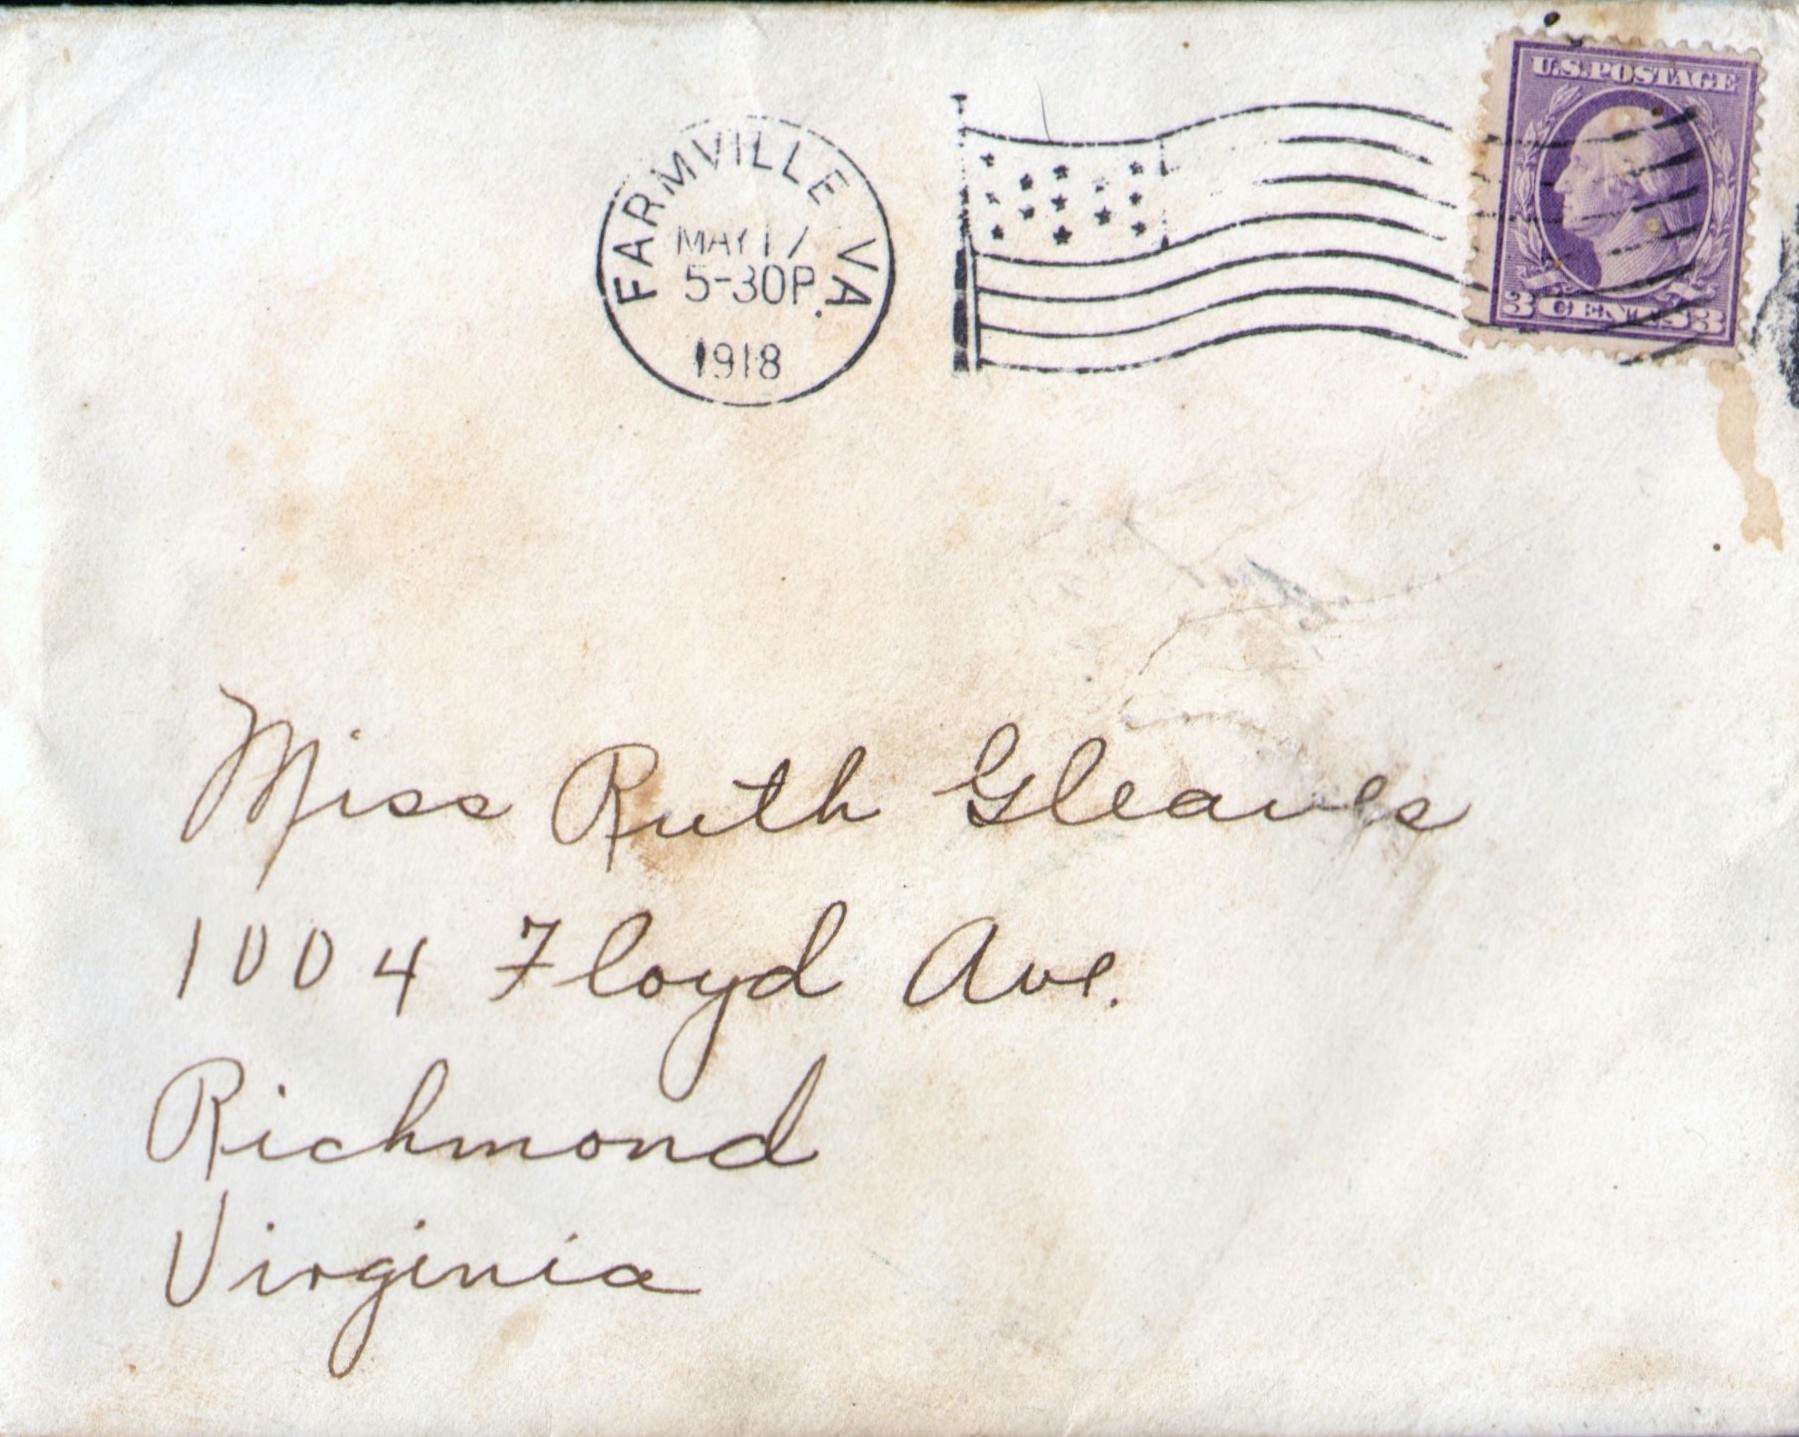 FARMVILLE VA.
MAY 17
5-30P
1918
U.S. POSTAGE
3 CENTS 3
Miss Ruth Gleaves
1004 Floyd Ave.
Richmond
Virginia